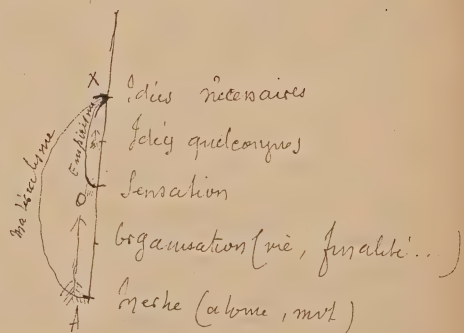 X
Idées nécessaires
Idées quelconques
Sensation
Organisation (vie, finalité...)
Inerte (atome, mvt)
Matérialisme
Empirisme